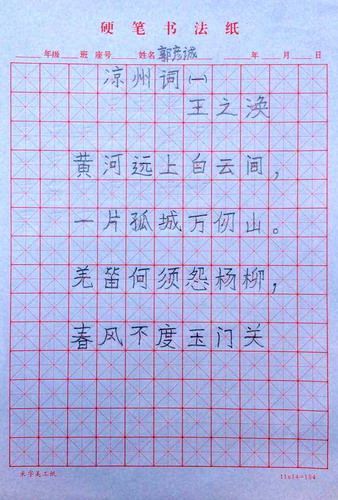 硬笔书法纸
年级 班 座号 姓名 郭彦诚 年 月 日
凉州词(一)
王之涣
黄河远上白云间,
一片孤城万仞山。
羌笛何须怨杨柳,
春风不度玉门关
米字美工纸 11x14=154